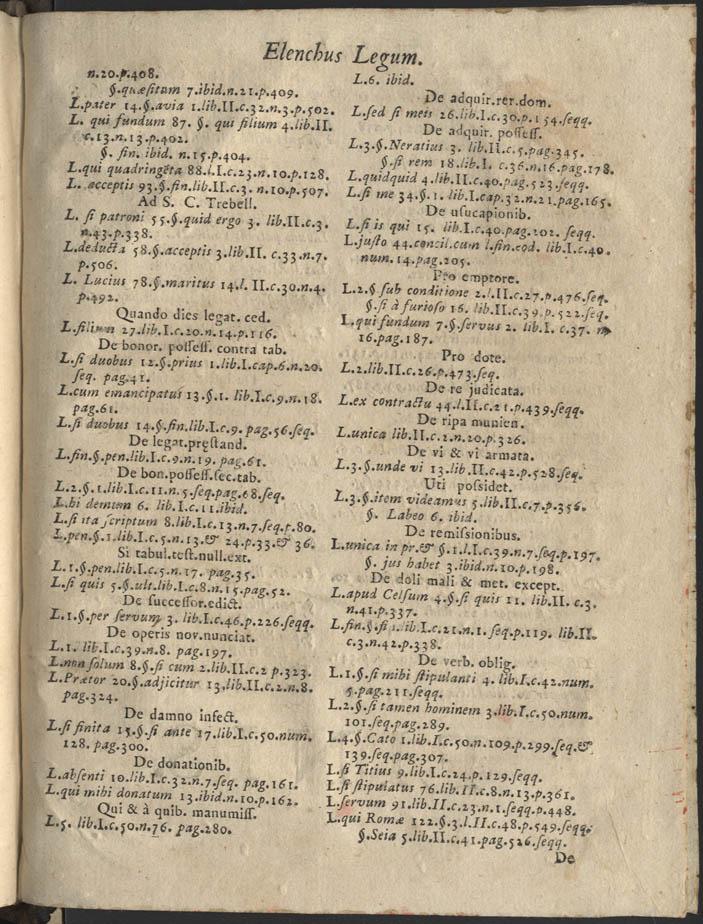 Elenchus Legum.
n.20.p.408.
§.quæsitum 7.ibid.n.21.p.409.
L.pater 14.§.avia 1.lib.II.c.32.n.3.p.502.
L. qui fundum 87. §. qui filium 4.lib.II.
c.13.n.13.p.402.
§. fin. ibid. n.15.p.404.
L.qui quadringēta 88.l.I.c.23.n.10.p.128.
L. acceptis 93.§.fin.lib.II.c.3. n.10.p.507.
Ad S. C. Trebell.
L. si patroni 55.§.quid ergo 3. lib.II.c.3.
n.43.p.338.
L.deducta 58.§.acceptis 3.lib.II. c.33.n.7.
p.506.
L. Lucius 78.§.maritus 14.l. II.c.30.n.4.
p.492.
Quando dies legat. ced.
L.filium 27.lib.I.c.20.n.14.p.116.
De bonor. possess. contra tab.
L.si duobus 12.§.prius 1.lib.I.cap.6.n.20.
seq. pag.41.
L.cum emancipatus 13.§.1. lib.I.c.9.n.18.
pag.61.
L.si duobus 14.§.fin.lib.I.c.9. pag.56.seq.
De legat.pręstand.
L.fin.§.pen.lib.I.c.9.n.19. pag.61.
De bon.possess.sec.tab.
L.2.§.1.lib.I.c.11.n.5.seq.pag.68.seq.
L.hi demum 6. lib.I.c.11.ibid.
L.si ita scriptum 8.lib.I.c.13.n.7.seq.p.80.
L.pen.§.1.lib.I.c.5.n.13.& 24.p.33.& 36.
Si tabul.test.null.ext.
L.1.§.pen.lib.I.c.5.n.17. pag.35.
L.si quis 5.§.ult.lib.I.c.8.n.15.pag.52.
De successor.edict.
L.1.§.per servum 3. lib.I.c.46.p.226.seqq.
De operis nov.nunciat.
L.1. lib.I.c.39.n.8. pag.197.
L.non solum 8.§.si cum 2.lib.II.c.2 p.323.
L.Prætor 20.§.adjicitur 13.lib.II.c.2.n.8.
pag.324.
De damno infect.
L.si finita 15.§.si ante 17.lib.I.c.50.num.
128. pag.300.
De donationib.
L.absenti 10.lib.I.c.32.n.7.seq. pag.161.
L.qui mihi donatum 13.ibid.n.10.p.162.
Qui & à quib. manumiss.
L.5. lib.I.c.50.n.76. pag.280.
L.6. ibid.
De adquir.rer.dom.
L.sed si meis 26.lib.I.c.30.p.154.seqq.
De adquir. possess.
L.3.§.Neratius 3. lib.II.c.5.pag.345.
§.si rem 18.lib.I. c.36.n.16.pag.178.
L.quidquid 4.lib.II.c.40.pag.523.seqq.
L.si me 34.§.1. lib.I.cap.32.n.21.pag.165.
De usucapionib.
L.si is qui 15. lib.I.c.40.pag.202. seqq.
L.justo 44.concil.cum l.fin.cod. lib.I.c.40.
num.14.pag.205.
Pro emptore.
L.2.§ sub conditione 2.l.II.c.27.p.476.seq.
§.si à furioso 16. lib.II.c.39.p.522.seq.
L.qui fundum 7.§.servus 2. lib.I. c.37. n.
16.pag.187.
Pro dote.
L.2.lib.II.c.26.p.473.seq.
De re judicata.
L.ex contractu 44.l.II.c.21.p.439.seqq.
De ripa munien.
L.unica lib.II.c.2.n.20.p.326.
De vi & vi armata.
L.3.§.unde vi 13.lib.II.c.42.p.528.seq.
Uti possidet.
L.3.§.item videamus 5.lib.II.c.7.p.356.
§. Labeo 6. ibid.
De remissionibus.
L.unica in pr.& §.1.l.I.c.39.n.7.seq.p.197.
§. jus habet 3.ibid.n.10.p.198.
De doli mali & met. except.
L.apud Celsum 4.§.si quis 11. lib.II. c.3.
n.41.p.337.
L.fin.§.si lib.I.c.21.n.1.seq.p.119. lib.II.
c.3.n.42.p.338.
De verb. oblig.
L.1.§.si mihi stipulanti 4. lib.I.c.42.num.
5.pag.211.seqq.
L.2.§.si tamen hominem 3.lib.I.c.50.num.
101.seq.pag.289.
L.4.§.Cato 1.lib.I.c.50.n.109.p.299.seq.&
139.seq.pag.307.
L.si Titius 9.lib.I.c.24.p.129.seqq.
L.si stipulatus 76.lib.II.c.8.n.13.p.361.
L.servum 91.lib.II.c.23.n.1.seq.p.448.
L.qui Romæ 122.§.3.l.II.c.48.p.549.seqq.
§.Seia 5.lib.II.c.41.pag.526.seqq.
De